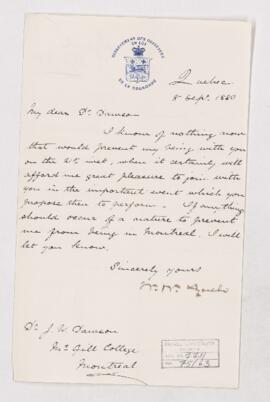 DEPARTEMENT DES OFFICIERS
EN LOI
DE LA COURONNE
Quebec
8 Sept. 1880
My dear Dr Dawson
I know of nothing now
that would prevent my being with you
on the 21st inst, when it certainly will
afford me great pleasure to join with
you in the important event which you
propose then to perform. If anything
should occur of a nature to prevent
me from being in Montreal, I will
let you know.
Sincerely yours
Dr J. W. Dawson
McGill College
Montreal
ACC. NO. 2211
REF. 75/63